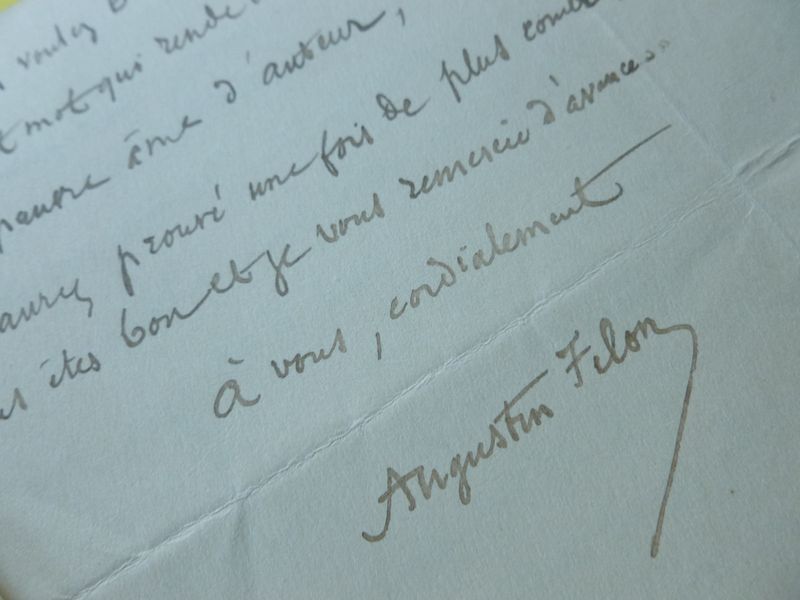 voulez
mot qui rende
pauvre âme d'auteur,
aurez prouvé une fois de plus combi
êtes bon et je vous remercie d'avance.
à vous, cordialement
Augustin Filon